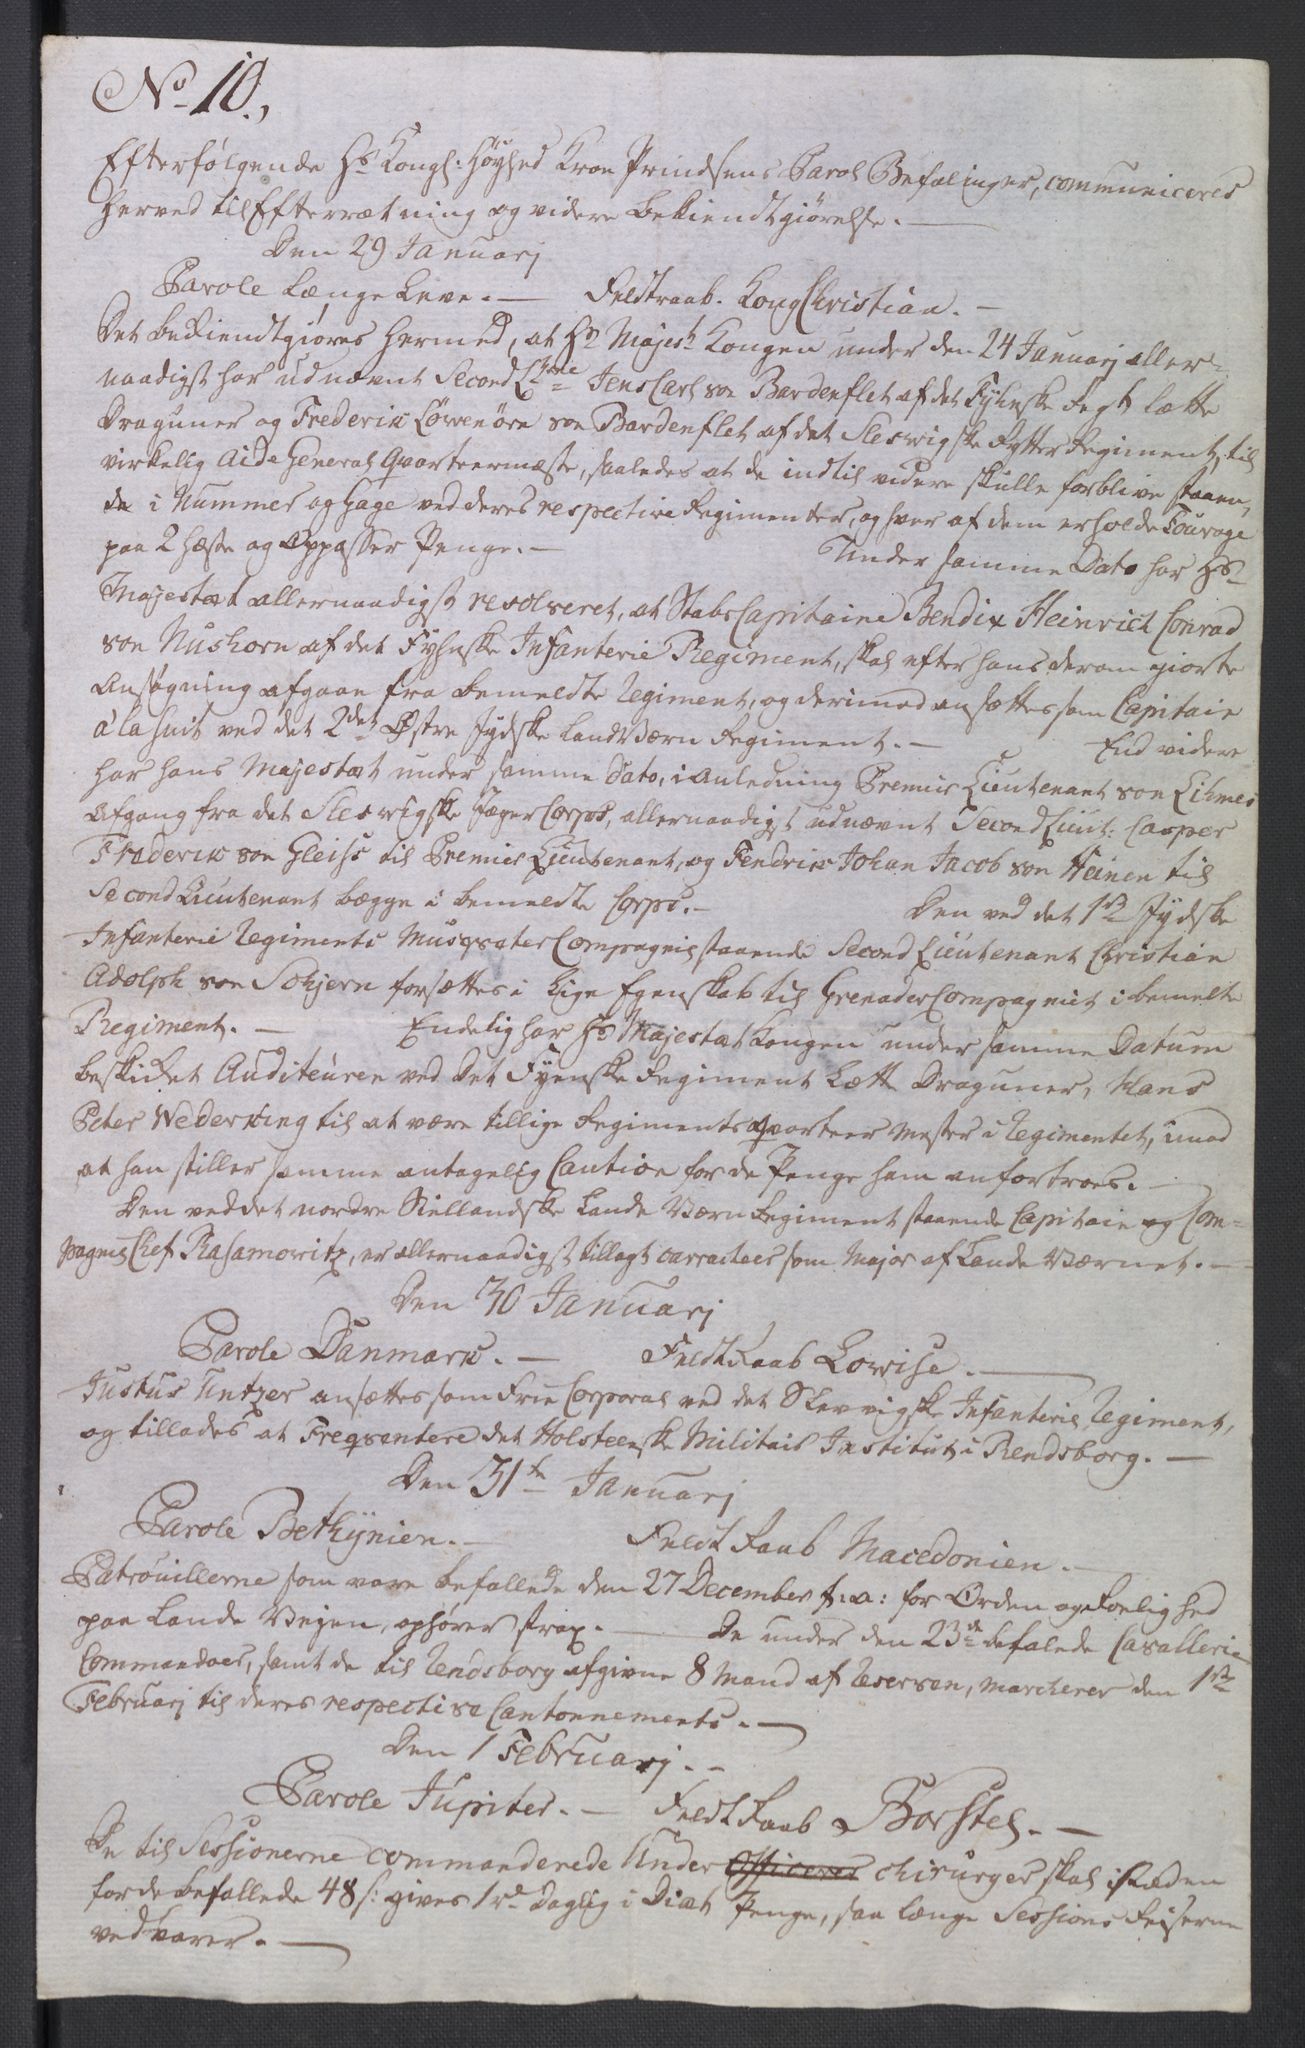 No 10.,
Efterfølgende Hs Kongl: Høyhed Kron Prindsens Parol Befalinger, communiceres
herved til Efterretning og videre bekiendtgiørelse. —
Den 29 Januarj
Parole Længe Leve. — Feldtraab. Kong Christian. —
Det bekiendtgiøres hermed, at Hs Majest Kongen under den 24 Januarj aller-
naadigst har udnævnt Second Ltne Jens Carl von Bardenflet af det Fyhnske Regt lætte
Draguner og Frederik Löwenörn von Bardenflet af det Sleswigske Rytter Regiment, til
virkelig Aide General Qvarteermestre, saaledes at de indtil videre skulle forblive staaen,
de i Nummer og Gage ved deres respective Regimenter, og hver af dem erholde Fourage
paa 2 Heste og Oppasser Penge. — Under samme Dato har Hs
Majestæt allernaadigst resolveret, at Stabs Capitaine Bendix Heinrich Conrad
von Nushorn af det Fyhnske Infanterie Regiment, skal efter hans derom giorte
Ansøgning afgaae fra bemeldte Regiment, og derimod ansættes som Capitain
à la Suit ved det 2det Østre Jydske Landværn Regiment. — End videre
har hans Majestæt under samme Dato, i Anledning Premier Lieutenant von Lihmes
Afgang fra det Sleswigske Jæger Corps, allernaadigst udnævnt Second Lieut: Casper
Frederik von Gleiss til Premier Lieutenant, og Fendrik Johan Jacob von Heinen til
Second Lieutenant begge i bemeldte Corps. — Den ved det 1ste Jydske
Infanterie Regiments Musqveter Compagnie staaende Second Lieutenant Christian
Adolph von Schjern forsættes i lige Egenskab til Grenader Compagniet i bemelte
Regiment. — Endelig har Hs Majestæt Kongen under samme Datum
beskikket Auditeuren ved det Fyenske Regiment Lætte Draguner, Hans
Peter Wederking til at være tillige Regiments Qvarteer Mester i Regimentet, imod
at han stiller samme antagelig Caution for de Penge ham anfortroes. —
Den ved det nordre Siellandske Lande Værn Regiment staaende Capitain og Com-
pagnie Chef Rasamowitz, er allernaadigst tillagt carracteer som Major af Lande Værnet. —
Den 30 Januarj
Parole Danmark. — Feldt Raab Lovise. —
Justus Untzer ansættes som Frie Corporal ved det Slesvigske Infanterie Regiment,
og tillades at Freqventere det Holsteenske Militair Institut i Rendsborg. —
Den 31te Januarj
Parole Bethÿnien. — Feldt Raab Macedonien. —
Patrouillerne som vare befallede den 27 December f: a: for Orden og Roelighed
paa Lande Vejen, ophører strax. — De under den 23de befalede Cavallerie
Commandoer, samt de til Rendsborg afgivne 8 Mand af Reserven, marcherer den 1ste
Februarj til deres respective Cantonnements. —
Den 1 Februarj. —
Parole Jupiter. — Feldt Raab Borstel. —
De til Sessionerne commanderede Under Officerer chirurger skal i steden
for de befallede 48 s: gives 1 rd daglig i Diæt Penge, saa længe Sessions Reiserne
vedvarer. —